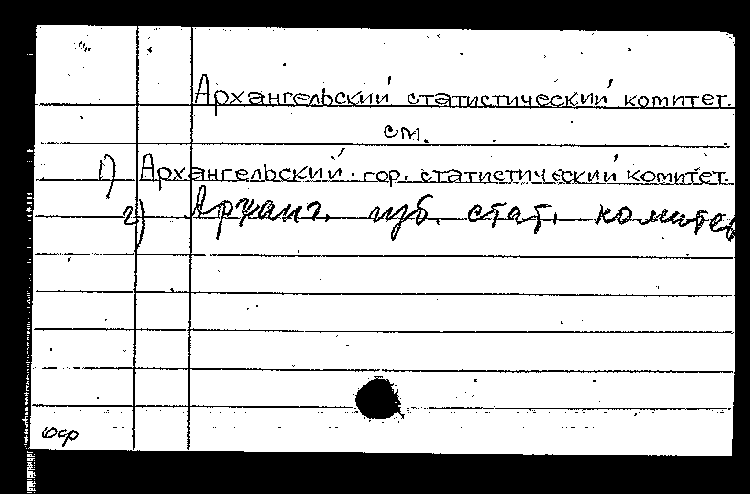 Архангельский статистический комитет.
см.
1) Архангельский гор. статистический комитет.
2) Арханг. губ. стат. комитет